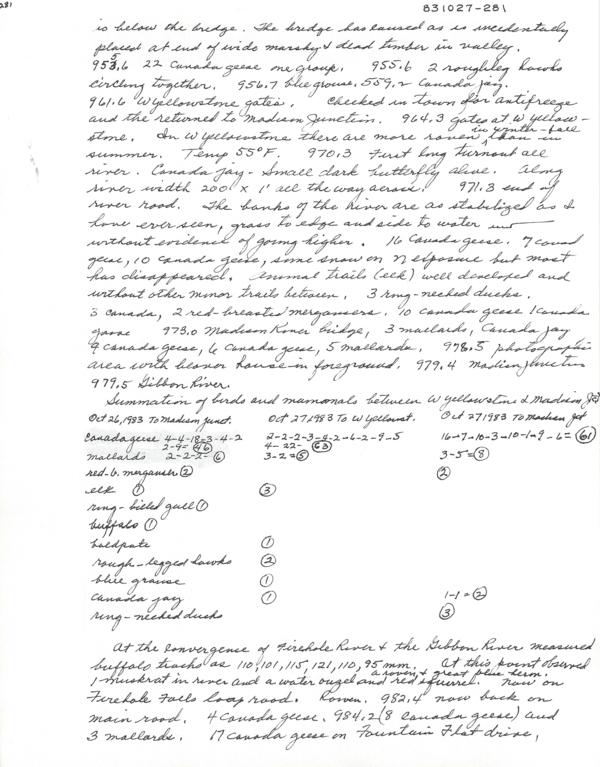 281
831027-281
is below the bridge. The bridge has caused as is incidentally
placed at end of wide marshy & dead timber in valley.
955.6 22 Canada geese one group. 955.6 2 roughleg hawks
circling together. 956.7 blue grouse, 559.2 Canada jay.
961.6 W Yellowstone gates. Checked in town for antifreeze
and the returned to Madison Junction. 964.3 gates at W Yellow-
stone. In W Yellowstone there are more raven in winter-fall than in
summer. Temp 55°F. 970.3 First long turnout all
river. Canada jay - Small dark butterfly alive. Along
river width 200' x 1' all the way across. 971.3 end of
river road. The banks of the river are as stabilized as I
have ever seen, grass to edge and side to water
without evidence of going higher. 16 Canada geese. 7 canad
geese, 10 Canada geese, some snow on N exposure but most
has disappeared. Animal trails (elk) well developed and
without other minor trails between. 3 ring-necked ducks.
3 canada, 2 red-breasted mergansers. 10 canada geese 1 Canada
goose 973.0 Madison River bridge, 3 mallards, Canada jay
9 Canada geese, 6 Canada geese, 5 mallards. 978.5 photographic
area with beaver house in foreground. 979.4 Madison Junction
979.5 Gibbon River.
Summation of birds and mammals between W Yellowstone & Madison Jct
Oct 26, 1983 To Madison Junct. Oct 27, 1983 To W Yellowst. Oct 27 1983 To Madison Jct
Canada geese 4-4-18-3-4-2 2-2-2-3-4-2-6-2-9-5 16-7-10-3-10-1-9-6= 61
2-9= 46 4-22- 63
mallards 2-2-2- 6 3-2= 5 3-5= 8
red-b. merganser 2 2
elk 1 3
ring-billed gull 1
buffalo 1
baldpate 1
rough-legged hawks 2
blue grouse 1
Canada jay 1 1-1= 2
ring-necked ducks 3
At the convergence of Firehole River & the Gibbon River measured
buffalo tracks as 110, 101, 115, 121, 110, 95 mm. At this point observed
1 muskrat in river and a water ouzel and a raven, & great blue heron. red squirrel. Now on
Firehole Falls loop road. Raven. 982.4 now back on
main road. 4 Canada geese. 984.2 (8 Canada geese) and
3 mallards. 17 Canada geese on Fountain Flat drive,